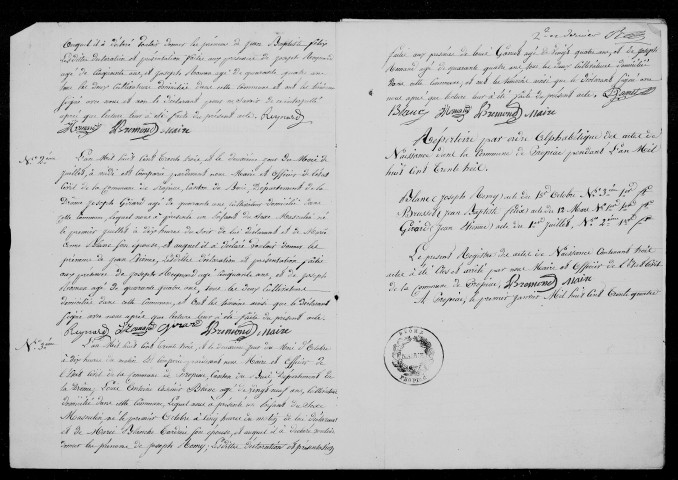 auquel il a déclaré vouloir donner les prénoms de Jean Baptiste félix
Lesdites déclaration et présentation faites aux présences de joseph Reynard
agé de Cinquante ans, et joseph Armand agé de quarante ans
tous les deux Cultivateurs domiciliés dans cette Commune et ont les témoins
signé avec nous et non le déclarant pour ne savoir de ce interpellé
après que lecture leur a été faite du présent acte. Reynard
Armand Bremond Maire
N.° 2ème
L'an Mil huit Cent Trente trois, et le deuxième jour du Mois de
juillet, à midi est Comparu pardevant nous Maire et Officier de l'état
Civil de la Commune de Propiac, Canton du Buis, Département de la
Drôme joseph Girard agé de quarante ans, Cultivateur domicilié dans
cette Commune, lequel nous a présenté un Enfant du Sexe Masculin né
le premier juillet à dix heures du Soir de lui Déclarant et de Marie
Blanc Son épouse, et auquel il a déclaré Vouloir donner les
prénoms de jean Etienne, Lesdites déclaration et présentation faites
aux présences de Joseph Reynard agé Cinquante ans, et de joseph
Armand agé de quarante ans, tous les deux Cultivateurs
domiciliés dans cette Commune, et ont les témoins ainsi que le déclarant
Signé avec nous après que lecture leur a été faite du présent acte
Reynard Armand Girard Bremond Maire
N.° 3ème
L'an Mil huit Cent Trente trois, et le deuxième jour du Mois d'Octobre
à dix heures du matin est Comparu pardevant nous Maire et Officier de
l'Etat Civil de la Commune de Propiac, Canton du Buis Département de
la Drôme, Blanc agé de vingt neuf ans, Cultivateur
domicilié dans cette Commune, lequel nous a présenté un Enfant du Sexe
Masculin, né le premier Octobre à cinq heures du de lui Déclarant
et de Marie Son épouse, et auquel il a déclaré vouloir
donner les prénoms de joseph Romy, Lesdites déclaration et présentation
2me et dernier
faites aux présences de Ganet agé de vingt quatre ans, et de joseph
Armand agé de quarante ans, tous les deux Cultivateurs domiciliés
dans cette Commune, et ont les témoins ainsi que le déclarant signé avec
nous après que lecture leur a été faite du présent acte. Ganet
Blanc Armand Bremond Maire
Répertoire par ordre Alphabétique des actes de
Naissance dans la Commune de Propiac pendant l'an Mil
huit Cent Trente trois
Blanc (joseph Romy) acte du 1er Octobre N.° 3ème 1er ft
Brusset (jean Baptiste félix) acte du 12 Mars N.° 1er 1er ft
Girard (jean Etienne) acte du 1er juillet, N.° 2ème 1er ft
Le présent Registre des actes de Naissance Contenant trois
actes a été Clos et arrêté par nous Maire et Officier de l'Etat Civil
de la Commune de Propiac. Bremond Maire
A Propiac, le premier janvier Mil huit Cent Trente quatre
PROPIAC